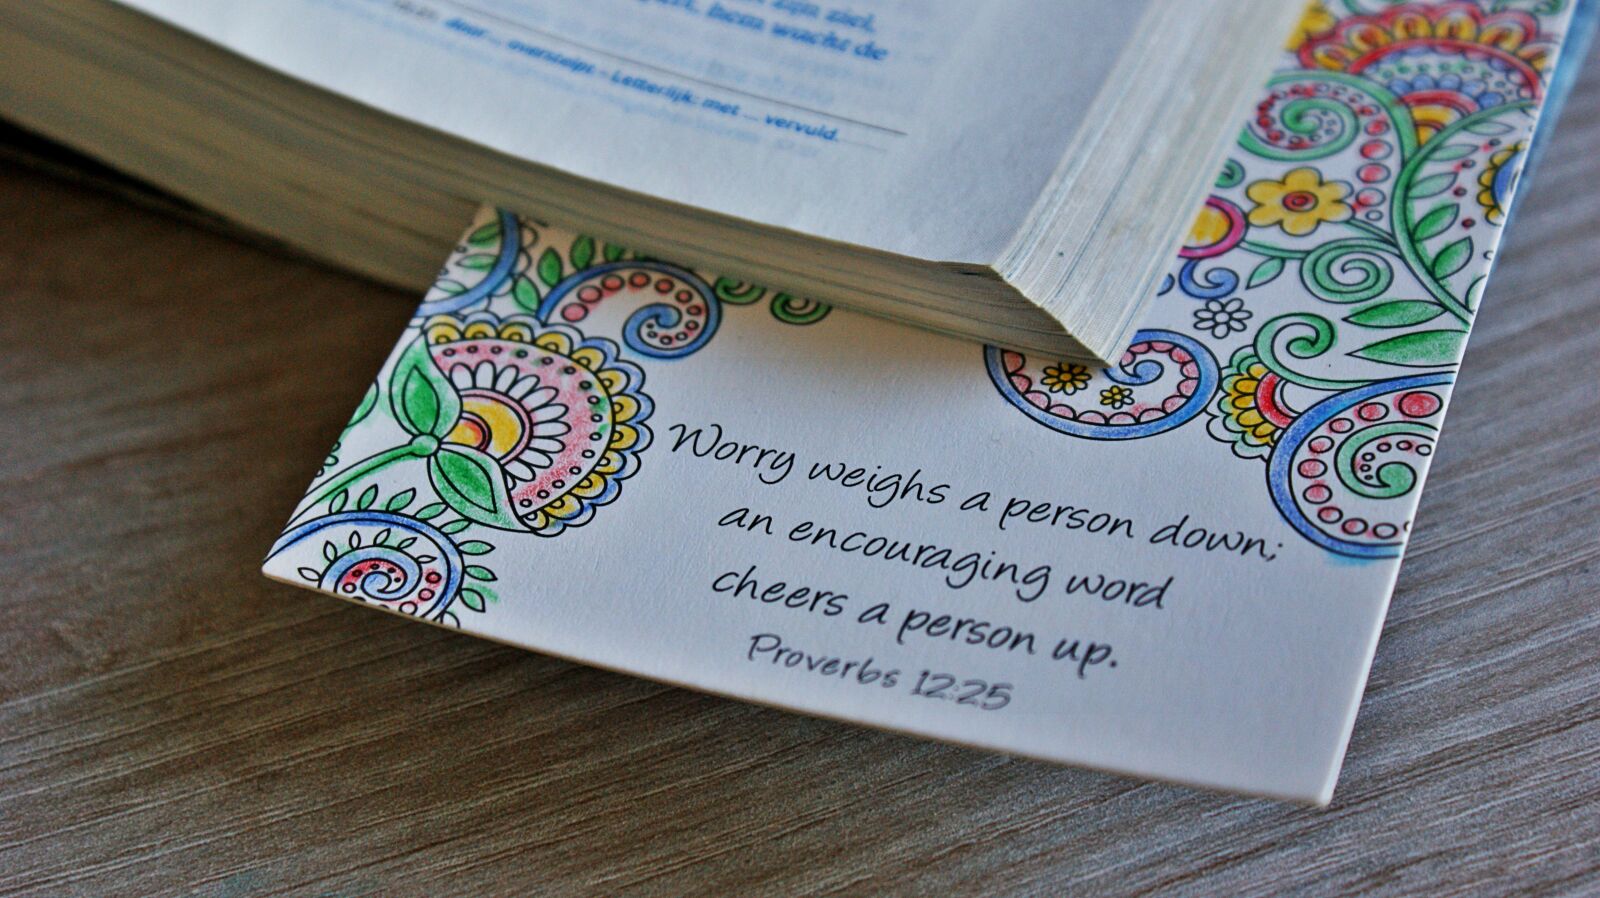 zijn ziel,
hem wacht de
door... overstelpt - Letterlijk: met ... vervuld.
Worry weighs a person down;
an encouraging word
cheers a person up.
Proverbs 12:25